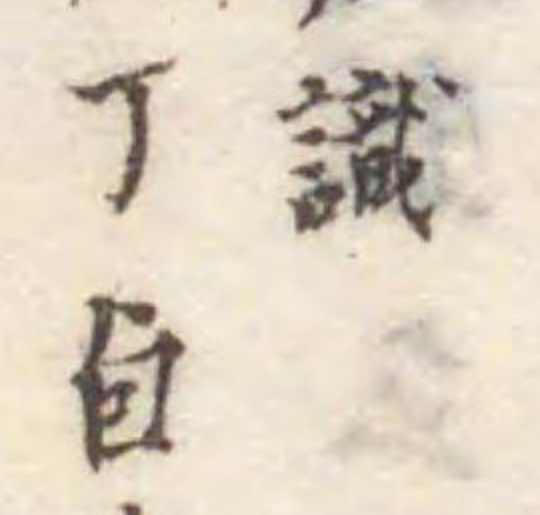 識
丁自